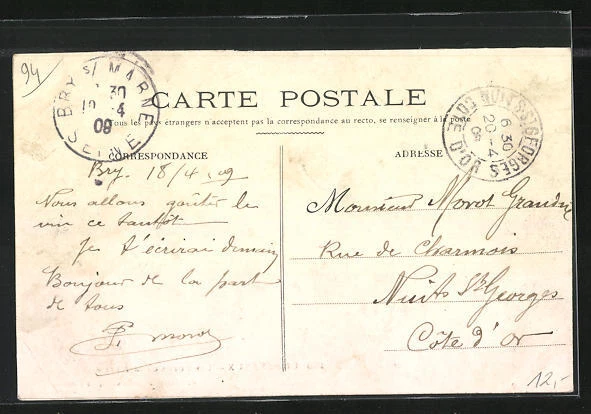 94
BRY S/ MARNE
30
19 -4
09
SEINE
NUITS-ST GEORGES
6 30
20 - 4
09
COTE D'OR
CARTE POSTALE
Tous les pays étrangers n'acceptent pas la correspondance au recto, se renseigner à la poste
CORRESPONDANCE
ADRESSE
Bry. 18/4 09
Nous allons goûter le
vin ce tantôt
Je t'écrirai demain
Bonjour de la part
de tous
P. Morot
Monsieur Morot Grandné
Rue de Charmois
Nuits St Georges
Côte d'Or
12,-